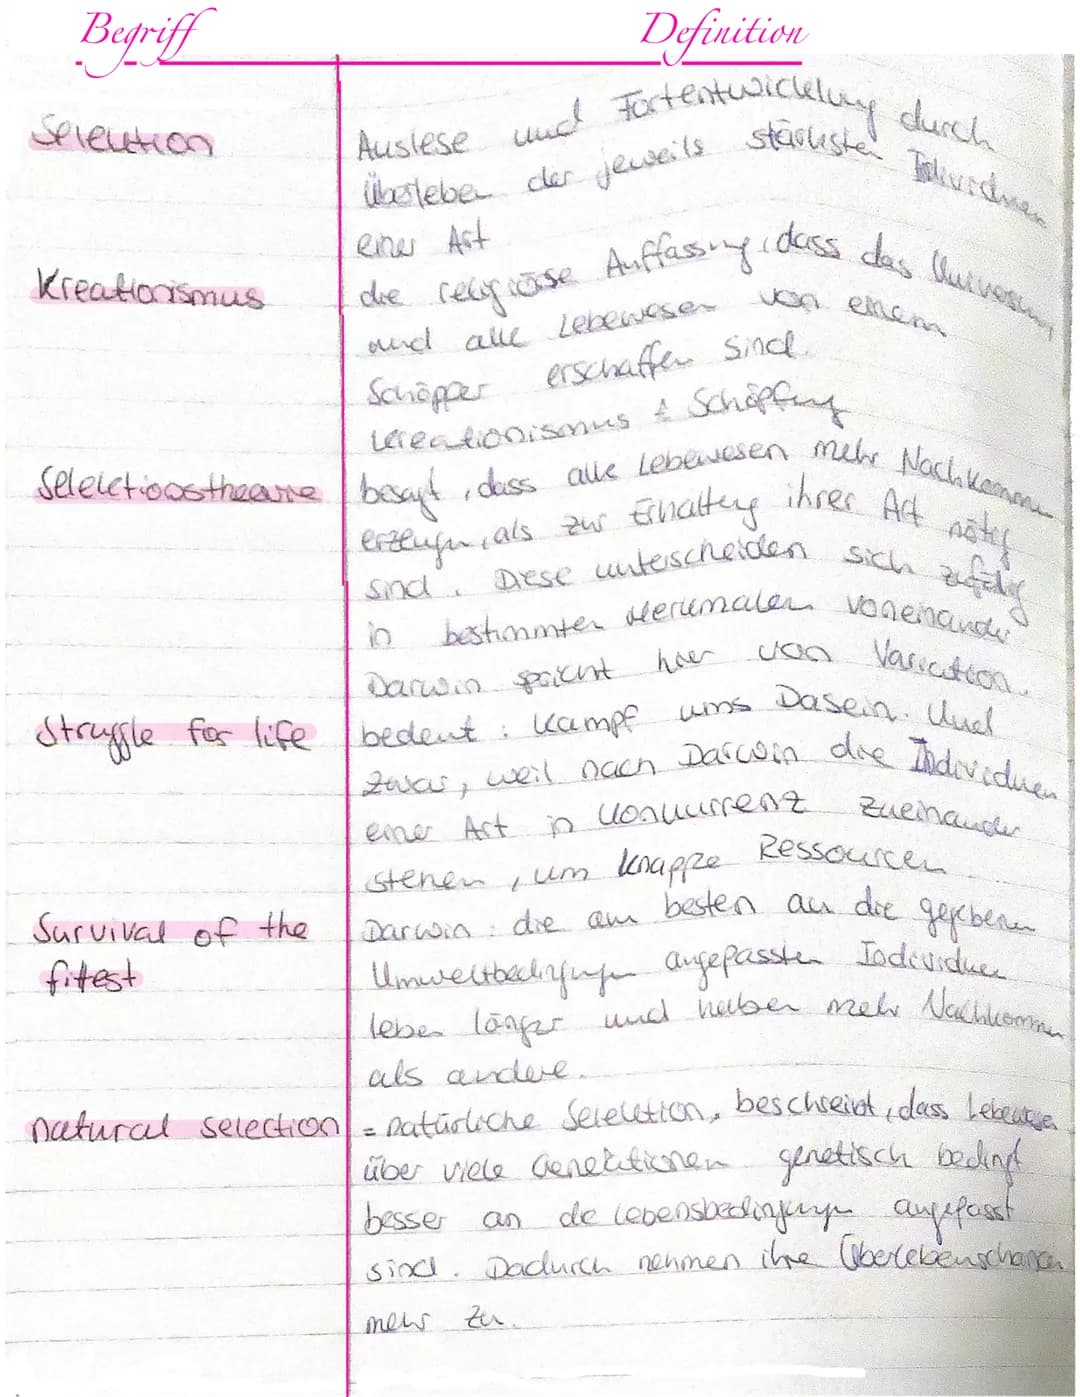 Begriff Definition
Selektion
Auslese und Fortentwicklung durch
Überleben der jeweils stärksten Individuen
einer Art
Kreationismus
die religiöse Auffassung, dass das Universum
und alle Lebewesen von einem
Schöpper erschaffen sind.
Kreationismus ≙ Schöpfung
Selektionstheorie
besagt, dass alle Lebewesen mehr Nachkommen
erzeugen, als zur Erhaltung ihrer Art nötig
sind. Diese unterscheiden sich zufällig
in bestimmten Merkmalen voneinander
Darwin spricht hier von Variation.
Struggle for life
bedeut: Kampf ums Dasein. Und
zwar, weil nach Darwin die Individuen
einer Art in Konkurrenz zueinander
stehen, um knappe Ressourcen
Survival of the
fittest
Darwin: die am besten an die gegebenen
Umweltbedingungen angepassten Individuen
leben länger und haben mehr Nachkommen
als andere.
natural selection
= natürliche Selektion, beschreibt, dass Lebewesen
über viele Generationen genetisch bedingt
besser an de Lebensbedingungen angepasst
sind. Dadurch nehmen ihre Überlebenschancen
mehr zu.